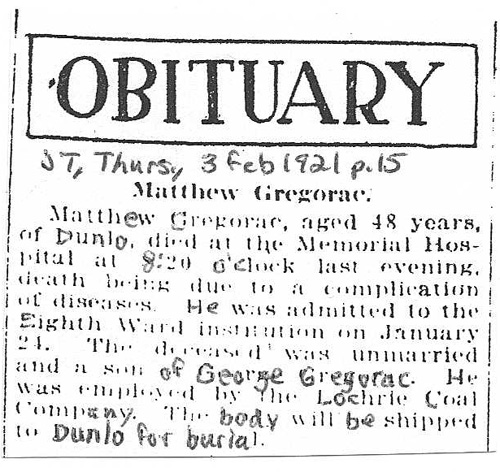 OBITUARY
JT, Thurs, 3 Feb 1921 p.15
Matthew Gregorac.
Matthew Gregorac, aged 48 years,
of Dunlo, died at the Memorial Hos-
pital at 8:20 o'clock last evening,
death being due to a complication
of diseases. He was admitted to the
Eighth Ward institution on January
24. The deceased was unmarried
and a son of George Gregorac. He
was employed by the Lochrie Coal
Company. The body will be shipped
to Dunlo for burial.